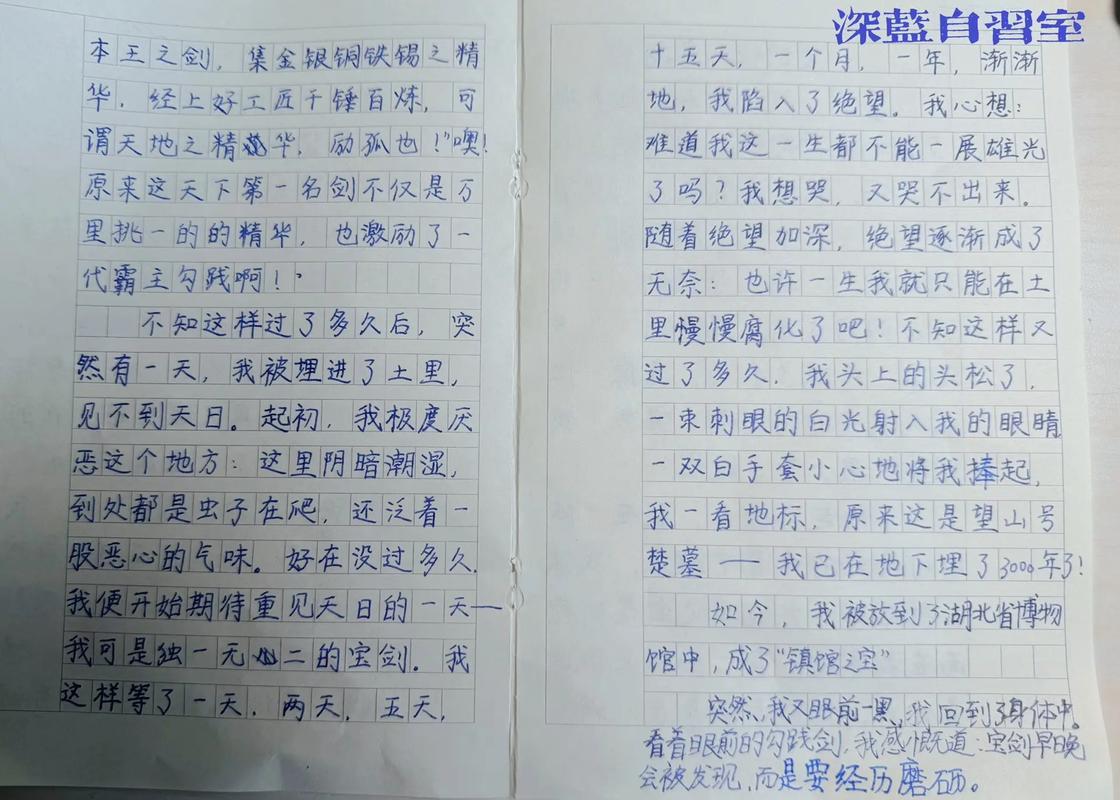 深蓝自習室
本王之剑，集金银铜铁锡之精
华，经上好工匠千锤百炼，可
谓天地之精华，励孤也！"噢！
原来这天下第一名剑不仅是万
里挑一的的精华，也激励了一
代霸主勾践啊！
不知这样过了多久后，突
然有一天，我被埋进了土里，
见不到天日。起初，我极度厌
恶这个地方：这里阴暗潮湿，
到处都是虫子在爬，还泛着一
股恶心的气味。好在没过多久，
我便开始期待重见天日的一天——
我可是独一无二的宝剑。我
这样等了一天，两天，五天，
十五天，一个月，一年，渐渐
地，我陷入了绝望。我心想：
难道我这一生都不能一展雄光
了吗？我想哭，又哭不出来。
随着绝望加深，绝望逐渐成了
无奈：也许一生我就只能在土
里慢慢腐化了吧！不知这样又
过了多久，我头上的头松了，
一束刺眼的白光射入我的眼睛，
一双白手套小心地将我捧起，
我一看地标，原来这是望山号
楚墓——我已在地下埋了3000年了！
如今，我被放到了湖北省博物
馆中，成了"镇馆之宝"
突然，我又眼前一黑，我回到了身体中。
看着眼前的勾践剑，我感慨道：宝剑早晚
会被发现，而是要经历磨砺。